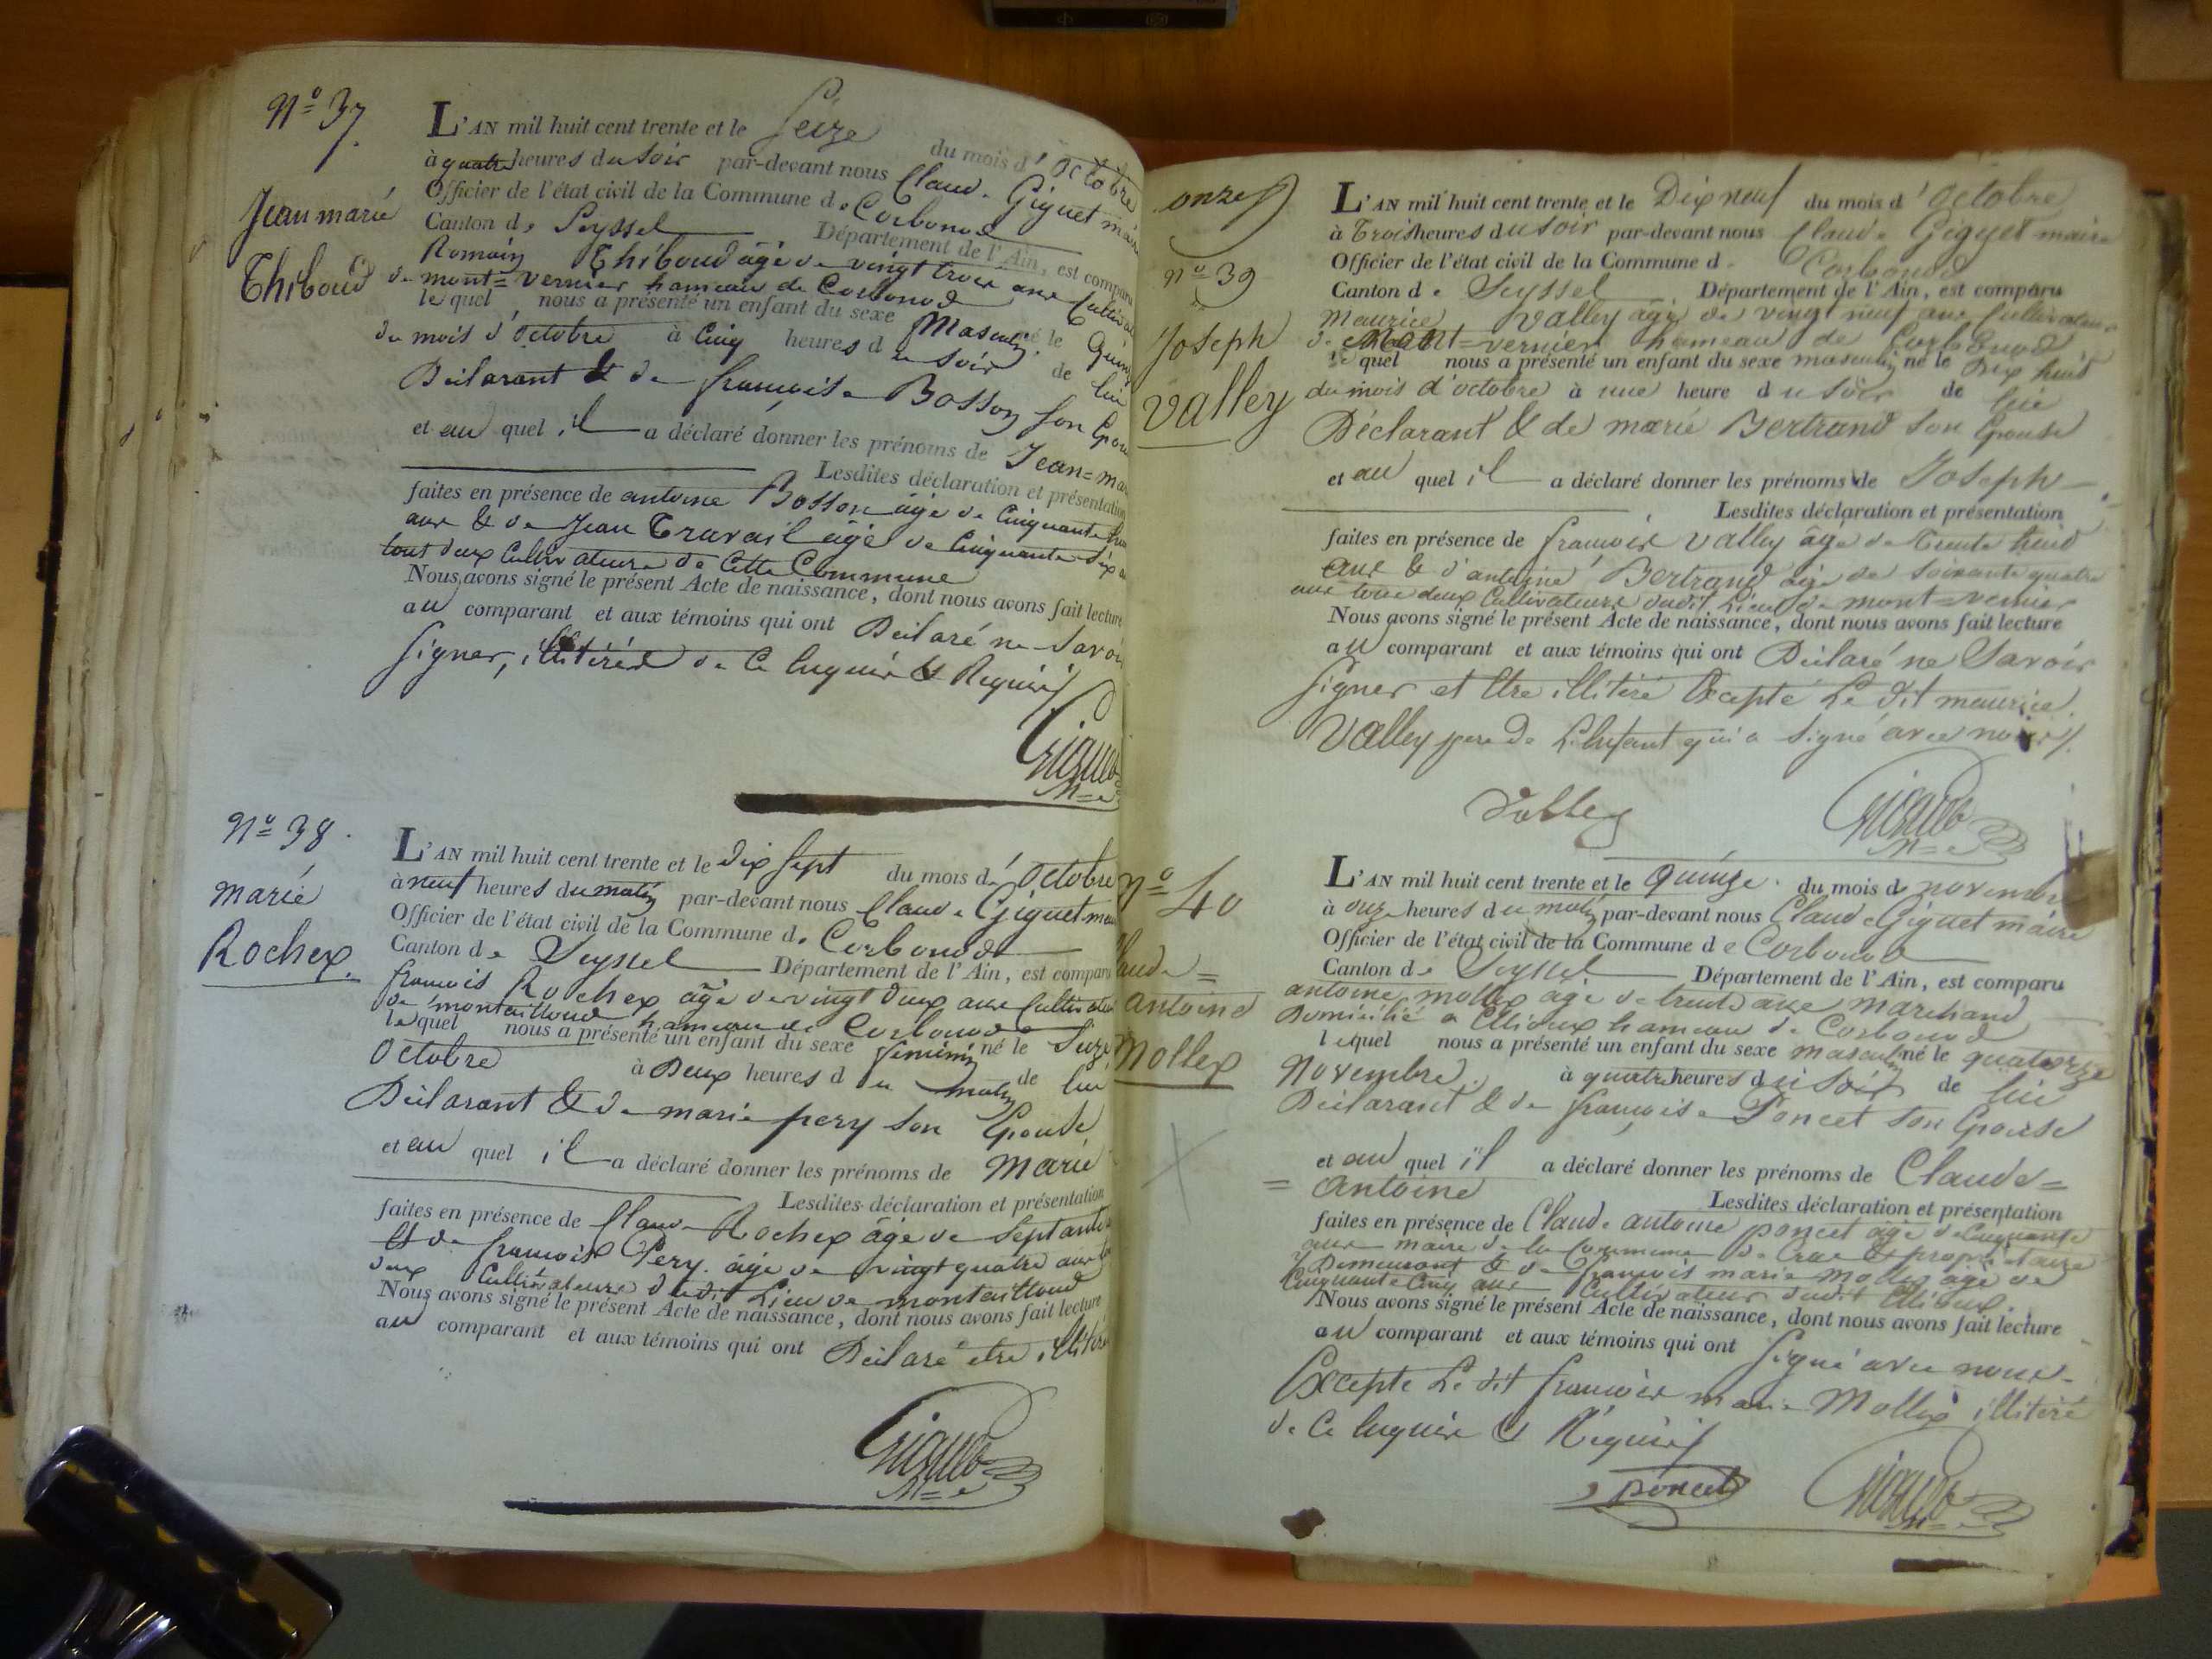 N° 37
Jean marie
Thiboud
L'AN mil huit cent trente et le Seize du mois d'Octobre
à quatre heures du Soir par-devant nous Claude Giguet maire
Officier de l'état civil de la Commune de Corbonod
Canton de Seyssel Département de l'Ain, est comparu
Romain Thiboud âgé de vingt trois ans Cultiv
de mont=vernier hameau de Corbonod
lequel nous a présenté un enfant du sexe Masculin né le Quinze
du mois d'Octobre à Cinq heures du Soir de lui
Déclarant & de françoise Bosson Son Epou
et au quel il a déclaré donner les prénoms de Jean=mar
Lesdites déclaration et présentation
faites en présence de antoine Bosson âgé de Cinquante
ans & de Jean Travail âgé de Cinquante-dix
tout deux Cultivateurs de Cette Commune
Nous avons signé le présent Acte de naissance, dont nous avons fait lecture
au comparant et aux témoins qui ont Déclaré ne Savoir
Signer, illitéré de Ce Enquis & Requis
Giguet
M=e
N° 38.
marie
Rochex
L'AN mil huit cent trente et le dix Sept du mois d'Octobre
à neuf heures du matin par-devant nous Claude Giguet maire
Officier de l'état civil de la Commune de Corbonod
Canton de Seyssel Département de l'Ain, est comparu
françois Rochex âgé de vingt Deux ans Cultivateur
de montailloud hameau de Corbonod
lequel nous a présenté un enfant du sexe féminin né le Seize
Octobre à Deux heures du matin de lui
Déclarant & de marie pery Son Epouse
et au quel il a déclaré donner les prénoms de Marie
Lesdites déclaration et présentation
faites en présence de Claude Rochex âgé de Septante
& de françois Pery. âgé de vingt quatre ans
deux Cultivateurs dudit Lieu de montailloud
Nous avons signé le présent Acte de naissance, dont nous avons fait lecture
au comparant et aux témoins qui ont Déclaré etre illitéré
Giguet
M=e
onze
n° 39
Joseph
Valley
L'AN mil huit cent trente et le Dix neuf du mois d'Octobre
à Trois heures du Soir par-devant nous Claude Giguet maire
Officier de l'état civil de la Commune d. Corbonod
Canton de Seyssel Département de l'Ain, est comparu
Maurice Valley âgé de vingt neuf ans Cultivateur
de Mont=vernier hameau de Corbonod
le quel nous a présenté un enfant du sexe masculin né le Dix huit
du mois d'octobre à une heure du Soir de lui
Déclarant & de marie Bertrand Son Epouse
et au quel il a déclaré donner les prénoms de Joseph
Lesdites déclaration et présentation
faites en présence de françois Valley âgé de Trente huit
ans & d'antoine Bertrand âgé de Soixante quatre
ans tous deux Cultivateurs dudit Lieu de mont=vernier
Nous avons signé le présent Acte de naissance, dont nous avons fait lecture
au comparant et aux témoins qui ont Déclaré ne Savoir
Signer et Etre illitéré Excepté Le dit maurice
Valley pere de L'enfant qui a Signé avec nous
Valley
Giguet
M=e
n° 40
Claude=
antoine
Mollex
L'AN mil huit cent trente et le Quinze du mois de novembre
à onze heures du matin par-devant nous Claude Giguet maire
Officier de l'état civil de la Commune de Corbonod
Canton de Seyssel Département de l'Ain, est comparu
antoine mollex âgé de trente ans marchand
Domicilié a Ettioux hameau de Corbonod
lequel nous a présenté un enfant du sexe masculin né le quatorze
Novembre. à quatre heures du Soir de lui
Déclarant & de françoise Poncet Son Epouse
et au quel il a déclaré donner les prénoms de Claude=
= Antoine
Lesdites déclaration et présentation
faites en présence de Claude antoine poncet âgé de Cinquante
ans maire de la Commune de & propriétaire
y Demeurant & de françois marie Mollex âgé de
Cinquante Cinq ans Cultivateur dudit Ettioux.
Nous avons signé le présent Acte de naissance, dont nous avons fait lecture
au comparant et aux témoins qui ont Signé avec nous
Excepté Le dit françois marie Mollex illitéré
de Ce Enquis & Réquis
Poncet
Giguet
M=e